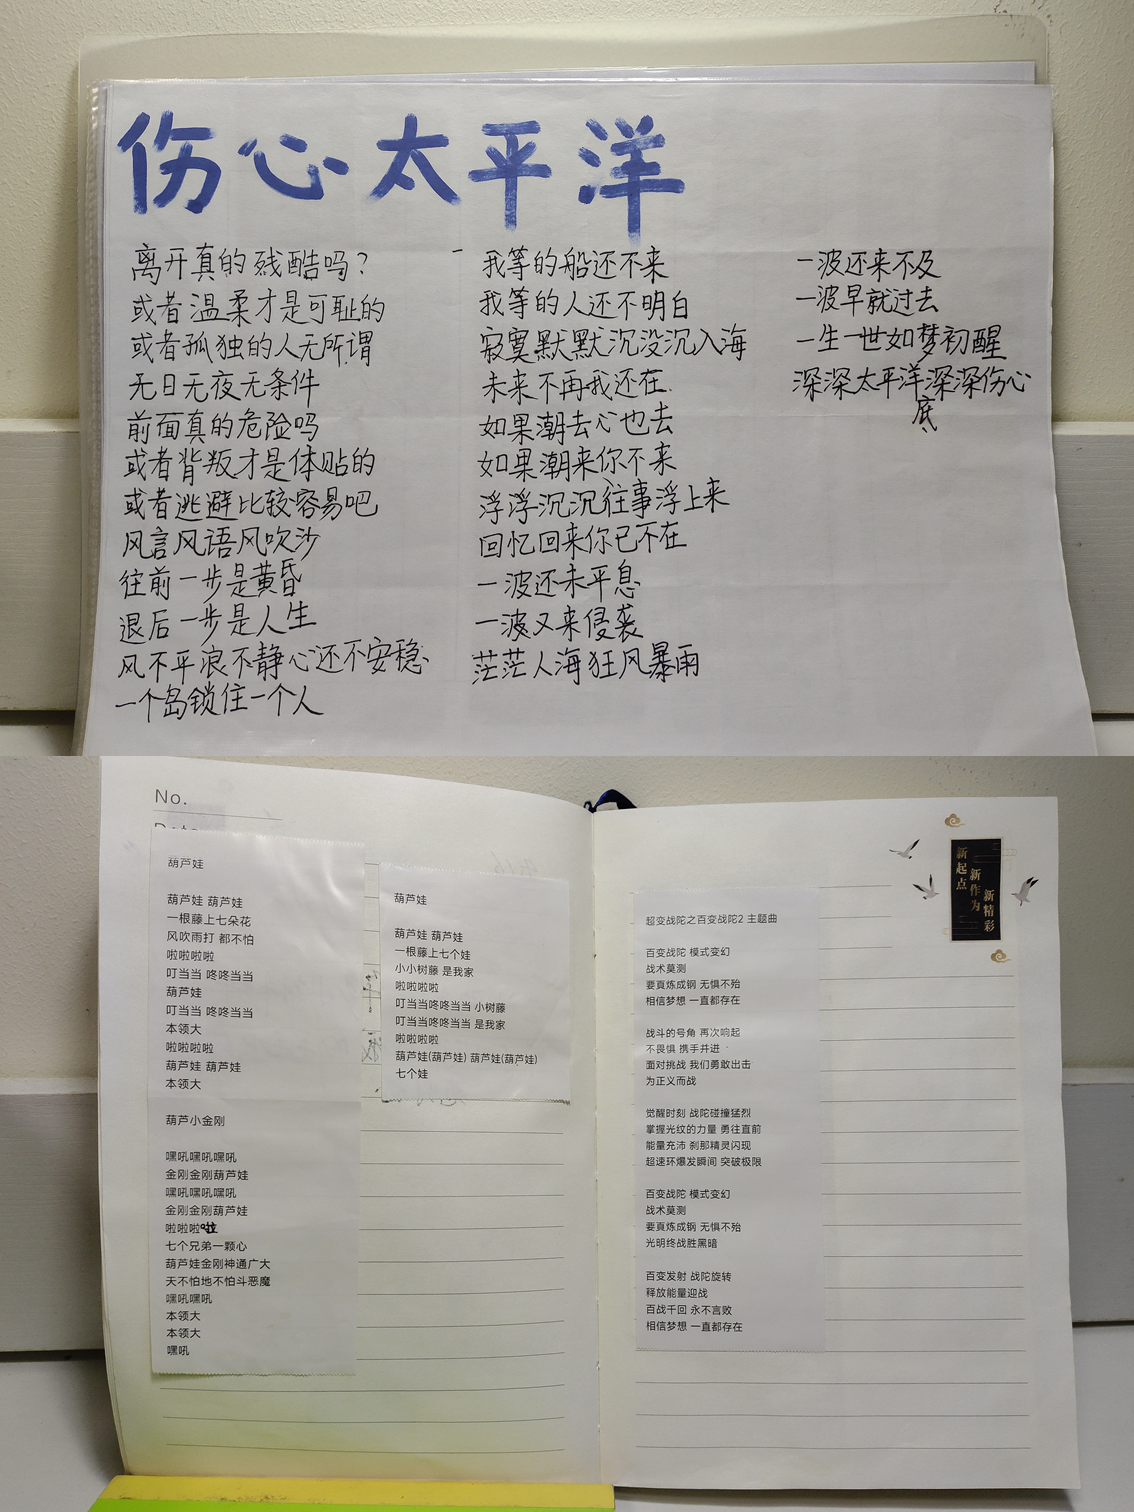 伤心太平洋
离开真的残酷吗？
或者温柔才是可耻的
或者孤独的人无所谓
无日无夜无条件
前面真的危险吗
或者背叛才是体贴的
或者逃避比较容易吧
风言风语风吹沙
往前一步是黄昏
退后一步是人生
风不平浪不静心还不安稳
一个岛锁住一个人
我等的船还不来
我等的人还不明白
寂寞默默沉没沉入海
未来不再我还在
如果潮去心也去
如果潮来你不来
浮浮沉沉往事浮上来
回忆回来你已不在
一波还未平息
一波又来侵袭
茫茫人海狂风暴雨
一波还来不及
一波早就过去
一生一世如梦初醒
深深太平洋深深伤心
底
No.
葫芦娃
葫芦娃 葫芦娃
一根藤上七朵花
风吹雨打 都不怕
啦啦啦啦
叮当当 咚咚当当
葫芦娃
叮当当 咚咚当当
本领大
啦啦啦啦
葫芦娃 葫芦娃
本领大
葫芦小金刚
嘿吼嘿吼嘿吼
金刚金刚葫芦娃
嘿吼嘿吼嘿吼
金刚金刚葫芦娃
啦啦啦啦
七个兄弟一颗心
葫芦娃金刚神通广大
天不怕地不怕斗恶魔
嘿吼嘿吼
本领大
本领大
嘿吼
葫芦娃
葫芦娃 葫芦娃
一根藤上七个娃
小小树藤 是我家
啦啦啦啦
叮当当咚咚当当 小树藤
叮当当咚咚当当 是我家
啦啦啦啦
葫芦娃(葫芦娃) 葫芦娃(葫芦娃)
七个娃
新起点
新作为
新精彩
超变战陀之百变战陀2 主题曲
百变战陀 模式变幻
战术莫测
要真炼成钢 无惧不殆
相信梦想 一直都存在
战斗的号角 再次响起
不畏惧 携手并进
面对挑战 我们勇敢出击
为正义而战
觉醒时刻 战陀碰撞猛烈
掌握光纹的力量 勇往直前
能量充沛 刹那精灵闪现
超速环爆发瞬间 突破极限
百变战陀 模式变幻
战术莫测
要真炼成钢 无惧不殆
光明终战胜黑暗
百变发射 战陀旋转
释放能量迎战
百战千回 永不言败
相信梦想 一直都存在